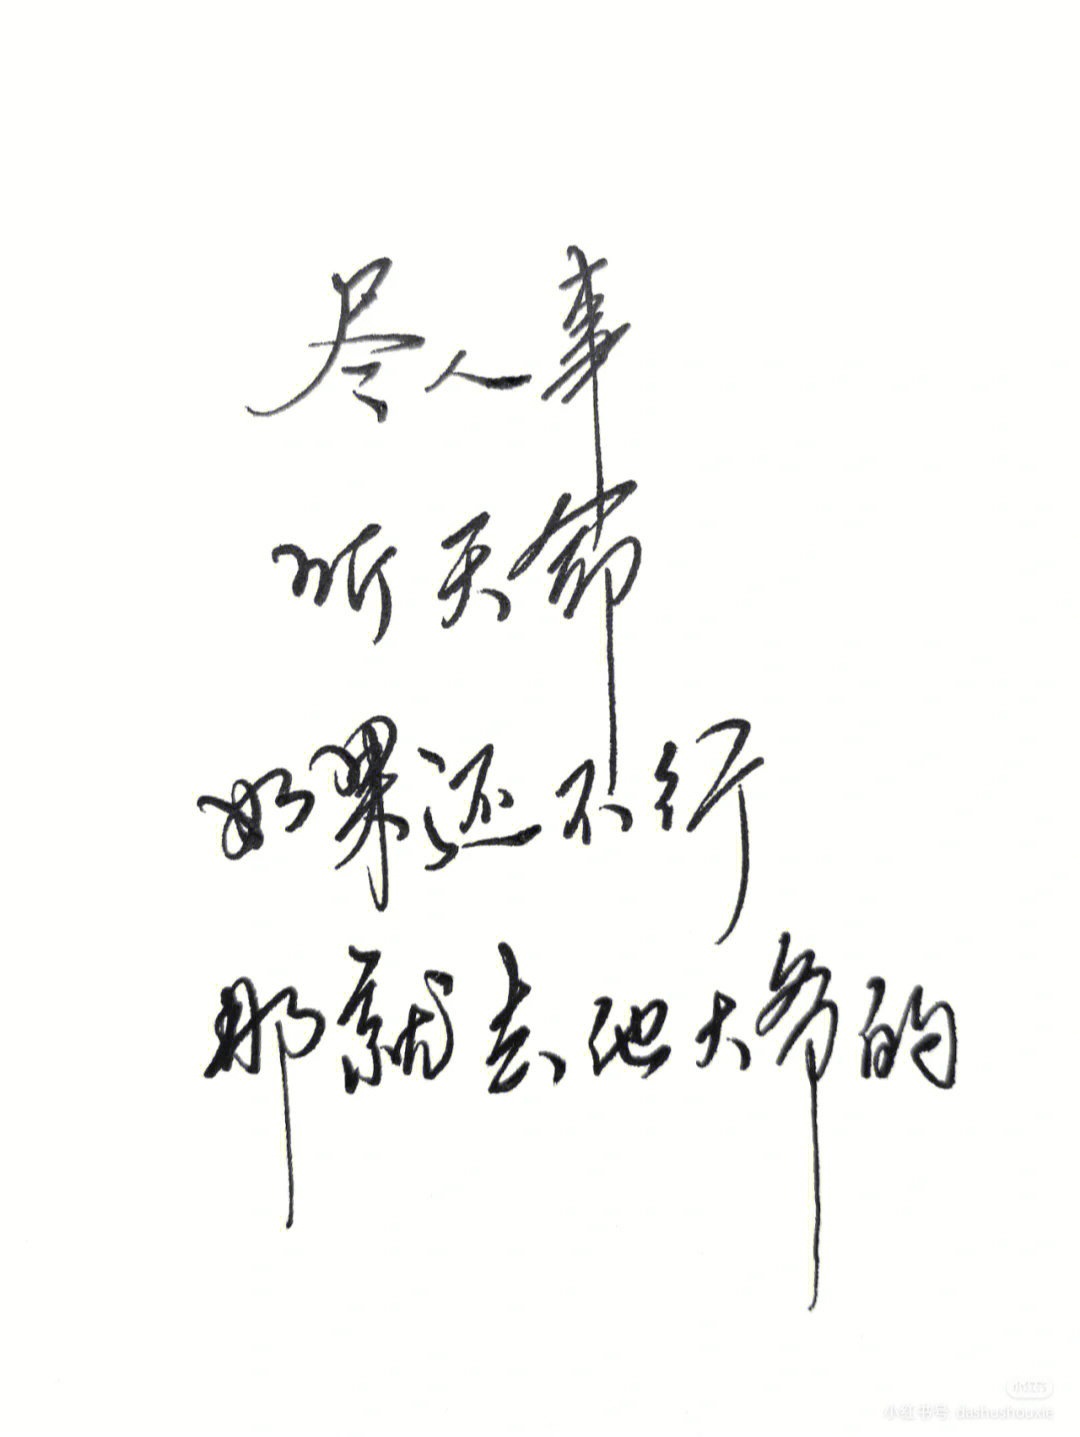 尽人事
听天命
如果还不行
那就去他大爷的
小红书
小红书号: dashushouxie